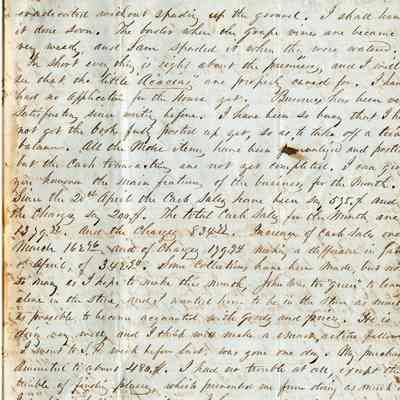 eradicated without spading up the ground. I shall have
it done soon. The border where the grape vines are became
very weedy and I am spaded it when the were watered.
In short every thing is right about the premises, and I will
see that the little "Acacias" are properly cared for. I have
had no application for the House yet. Business has been very
satisfactory since writing before. I have been so busy that I have
not got the books fully posted up yet, so as to take off a trial
balance. All the Mdse items have been journalized and posted
but the Cash transactions are not yet completed. I can give
you however the main features of the business for the Month.
Since the 20th Apl the Cash Sales have been say 575.$ and
the Charges say 200.$. The total Cash Sales for the Month are
And the Charges Increase of Cash Sales over
March and of Charges making a difference in favor
of April, of Some collections have been made, but not
so many as I hope to make this month. John was too "green" to leave
alone in the store, and I wanted him to be in the store as much
as possible to become acquainted with goods and prices. He is
doing very well, and I think will make a smart, active fellow
I went to S.F. week before last, was gone one day. My purchases
amounted to about 480.$. I had no trouble at all, except the
trouble of finding places, which prevented me from doing as much